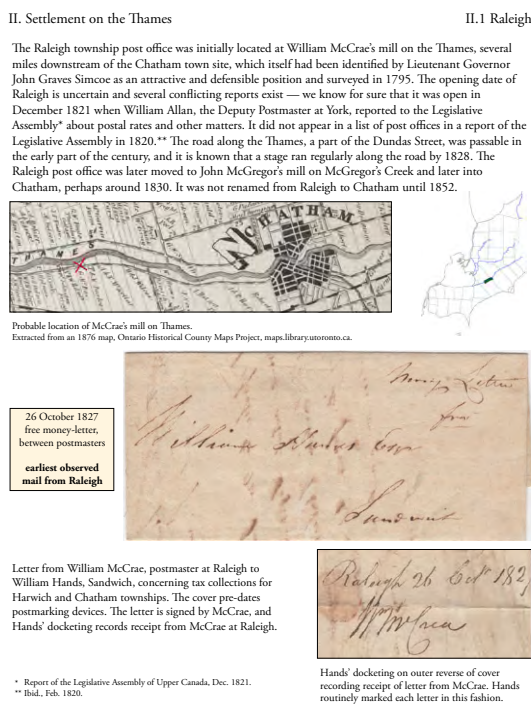 II. Settlement on the Thames
II.1 Raleigh
The Raleigh township post office was initially located at William McCrae's mill on the Thames, several
miles downstream of the Chatham town site, which itself had been identified by Lieutenant Governor
John Graves Simcoe as an attractive and defensible position and surveyed in 1795. The opening date of
Raleigh is uncertain and several conflicting reports exist — we know for sure that it was open in
December 1821 when William Allan, the Deputy Postmaster at York, reported to the Legislative
Assembly* about postal rates and other matters. It did not appear in a list of post offices in a report of the
Legislative Assembly in 1820.** The road along the Thames, a part of the Dundas Street, was passable in
the early part of the century, and it is known that a stage ran regularly along the road by 1828. The
Raleigh post office was later moved to John McGregor's mill on McGregor's Creek and later into
Chatham, perhaps around 1830. It was not renamed from Raleigh to Chatham until 1852.
THAMES
CHATHAM
Probable location of McCrae's mill on Thames.
Extracted from an 1876 map, Ontario Historical County Maps Project, maps.library.utoronto.ca.
Money Letter
free
William Hands Esqr
Sandwich
26 October 1827
free money-letter,
between postmasters
earliest observed
mail from Raleigh
Letter from William McCrae, postmaster at Raleigh to
William Hands, Sandwich, concerning tax collections for
Harwich and Chatham townships. The cover pre-dates
postmarking devices. The letter is signed by McCrae, and
Hands' docketing records receipt from McCrae at Raleigh.
Raleigh 26 Octr 182
Wm McCrea
Hands' docketing on outer reverse of cover
recording receipt of letter from McCrae. Hands
routinely marked each letter in this fashion.
* Report of the Legislative Assembly of Upper Canada, Dec. 1821.
** Ibid., Feb. 1820.